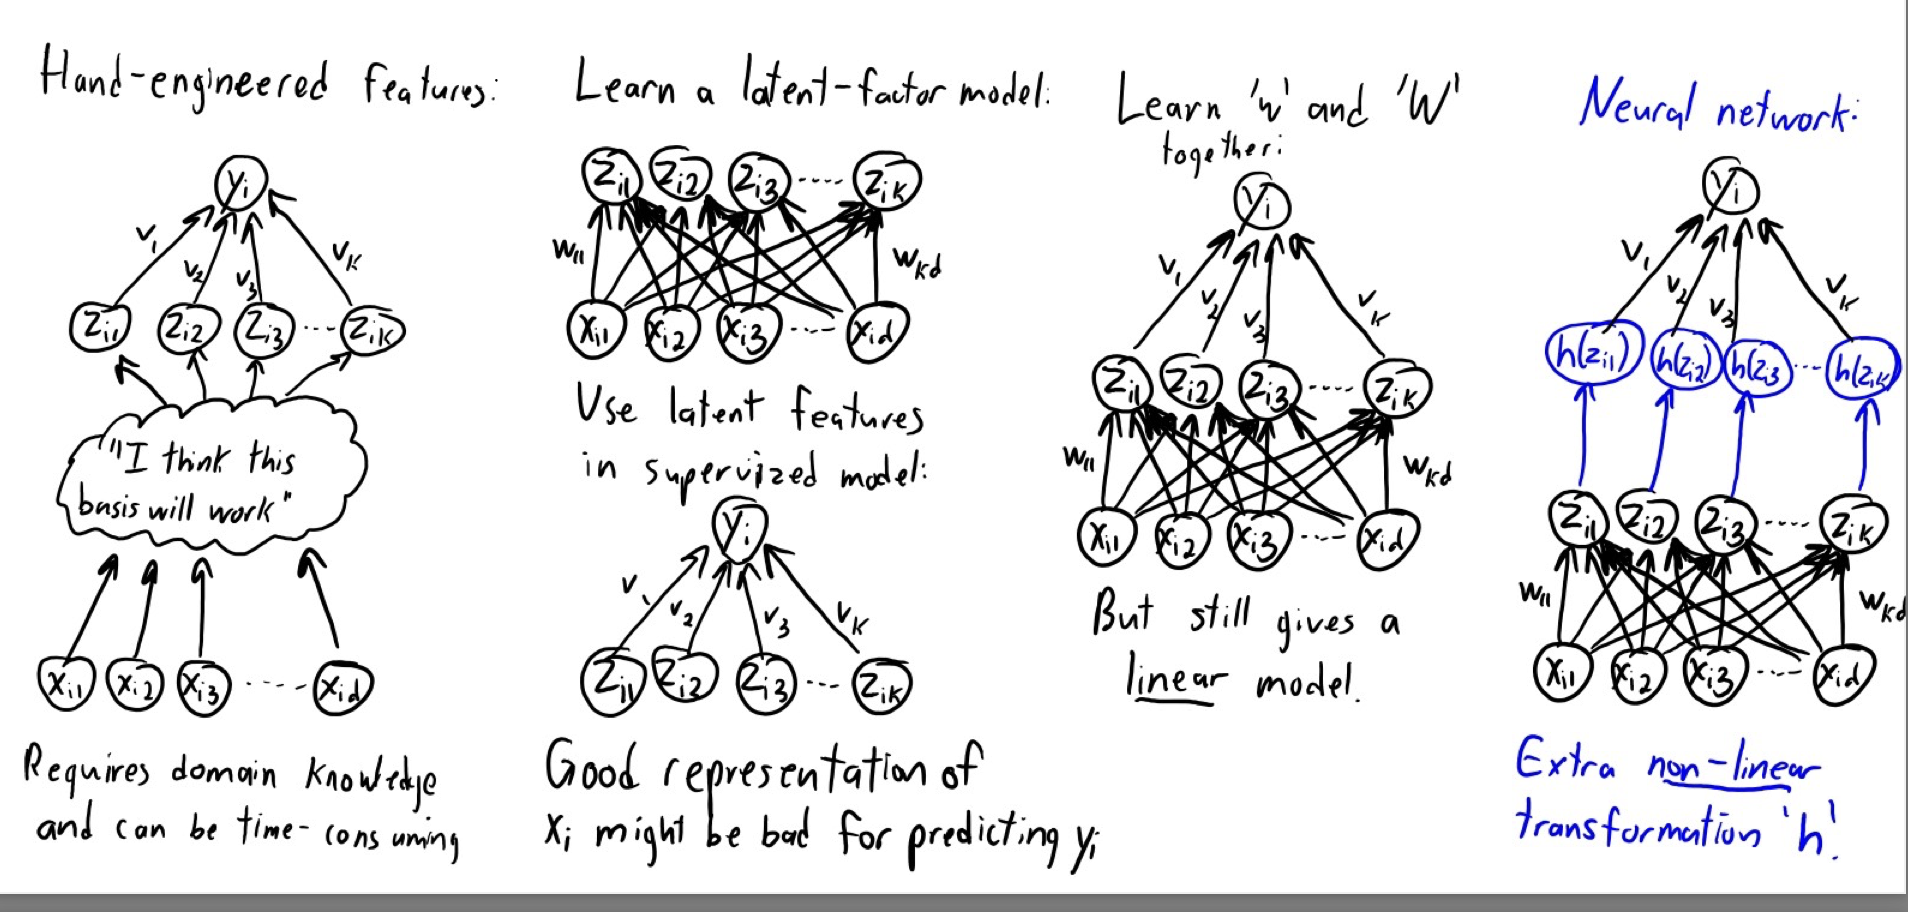 Hand-engineered features:
yi
v1 v2 v3 vk
zi1 zi2 zi3 .... zik
"I think this
basis will work"
xi1 xi2 xi3 .... xid
Requires domain knowledge
and can be time-consuming
Learn a latent-factor model:
zi1 zi2 zi3 .... zik
w11 wkd
xi1 xi2 xi3 .... xid
Use latent features
in supervized model:
yi
v1 v2 v3 vk
zi1 zi2 zi3 ... zik
Good representation of
xi might be bad for predicting yi
Learn 'v' and 'W'
together:
yi
v1 v2 v3 vk
zi1 zi2 zi3 .... zik
w11 wkd
xi1 xi2 xi3 .... xid
But still gives a
linear model.
Neural network:
yi
v1 v2 v3 vk
h(zi1) h(zi2) h(zi3 ... h(zik)
zi1 zi2 zi3 .... zik
w11 wkd
xi1 xi2 xi3 .... xid
Extra non-linear
transformation 'h'.